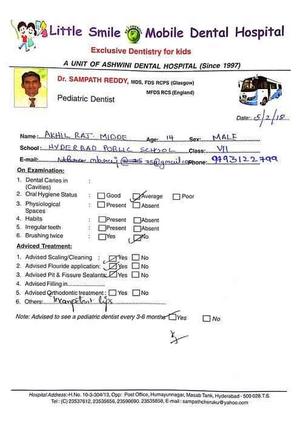 Little Smile Mobile Dental Hospital
Exclusive Dentistry for kids
A UNIT OF ASHWINI DENTAL HOSPITAL (Since 1997)
Dr. SAMPATH REDDY, MDS, FDS RCPS (Glasgow)
MFDS RCS (England)
Pediatric Dentist
Date: 5/2/18
Name: AKHIL RAJ MIDDE Age: 14 Sex: MALE
School: HYDERABAD PUBLIC SCHOOL Class: VII
E-mail: @gmail.com Phone: 9793122799
On Examination:
1. Dental Caries in :
(Cavities)
2. Oral Hygiene Status : Good Average Poor
3. Physiological : Present Absent
Spaces
4. Habits : Present Absent
5. Irregular teeth : Present Absent
6. Brushing twice : Yes No
Adviced Treatment:
1. Advised Scaling/Cleaning : Yes No
2. Advised Flouride application: Yes No
3. Advised Pit & Fissure Sealants: Yes No
4. Advised Filling in
5. Advised Orthodontic treatment : Yes No
6. Others:
Note: Advised to see a pediatric dentist every 3-6 months Yes No
Hospital Address: H.No. 10-3-304/13, Opp: Post Office, Humayunnagar, Masab Tank, Hyderabad - 500 028.T.S.
Tel: (C) 23537612, 23535656, 23596690, 23535858, E-mail: sampathcheruku@yahoo.com